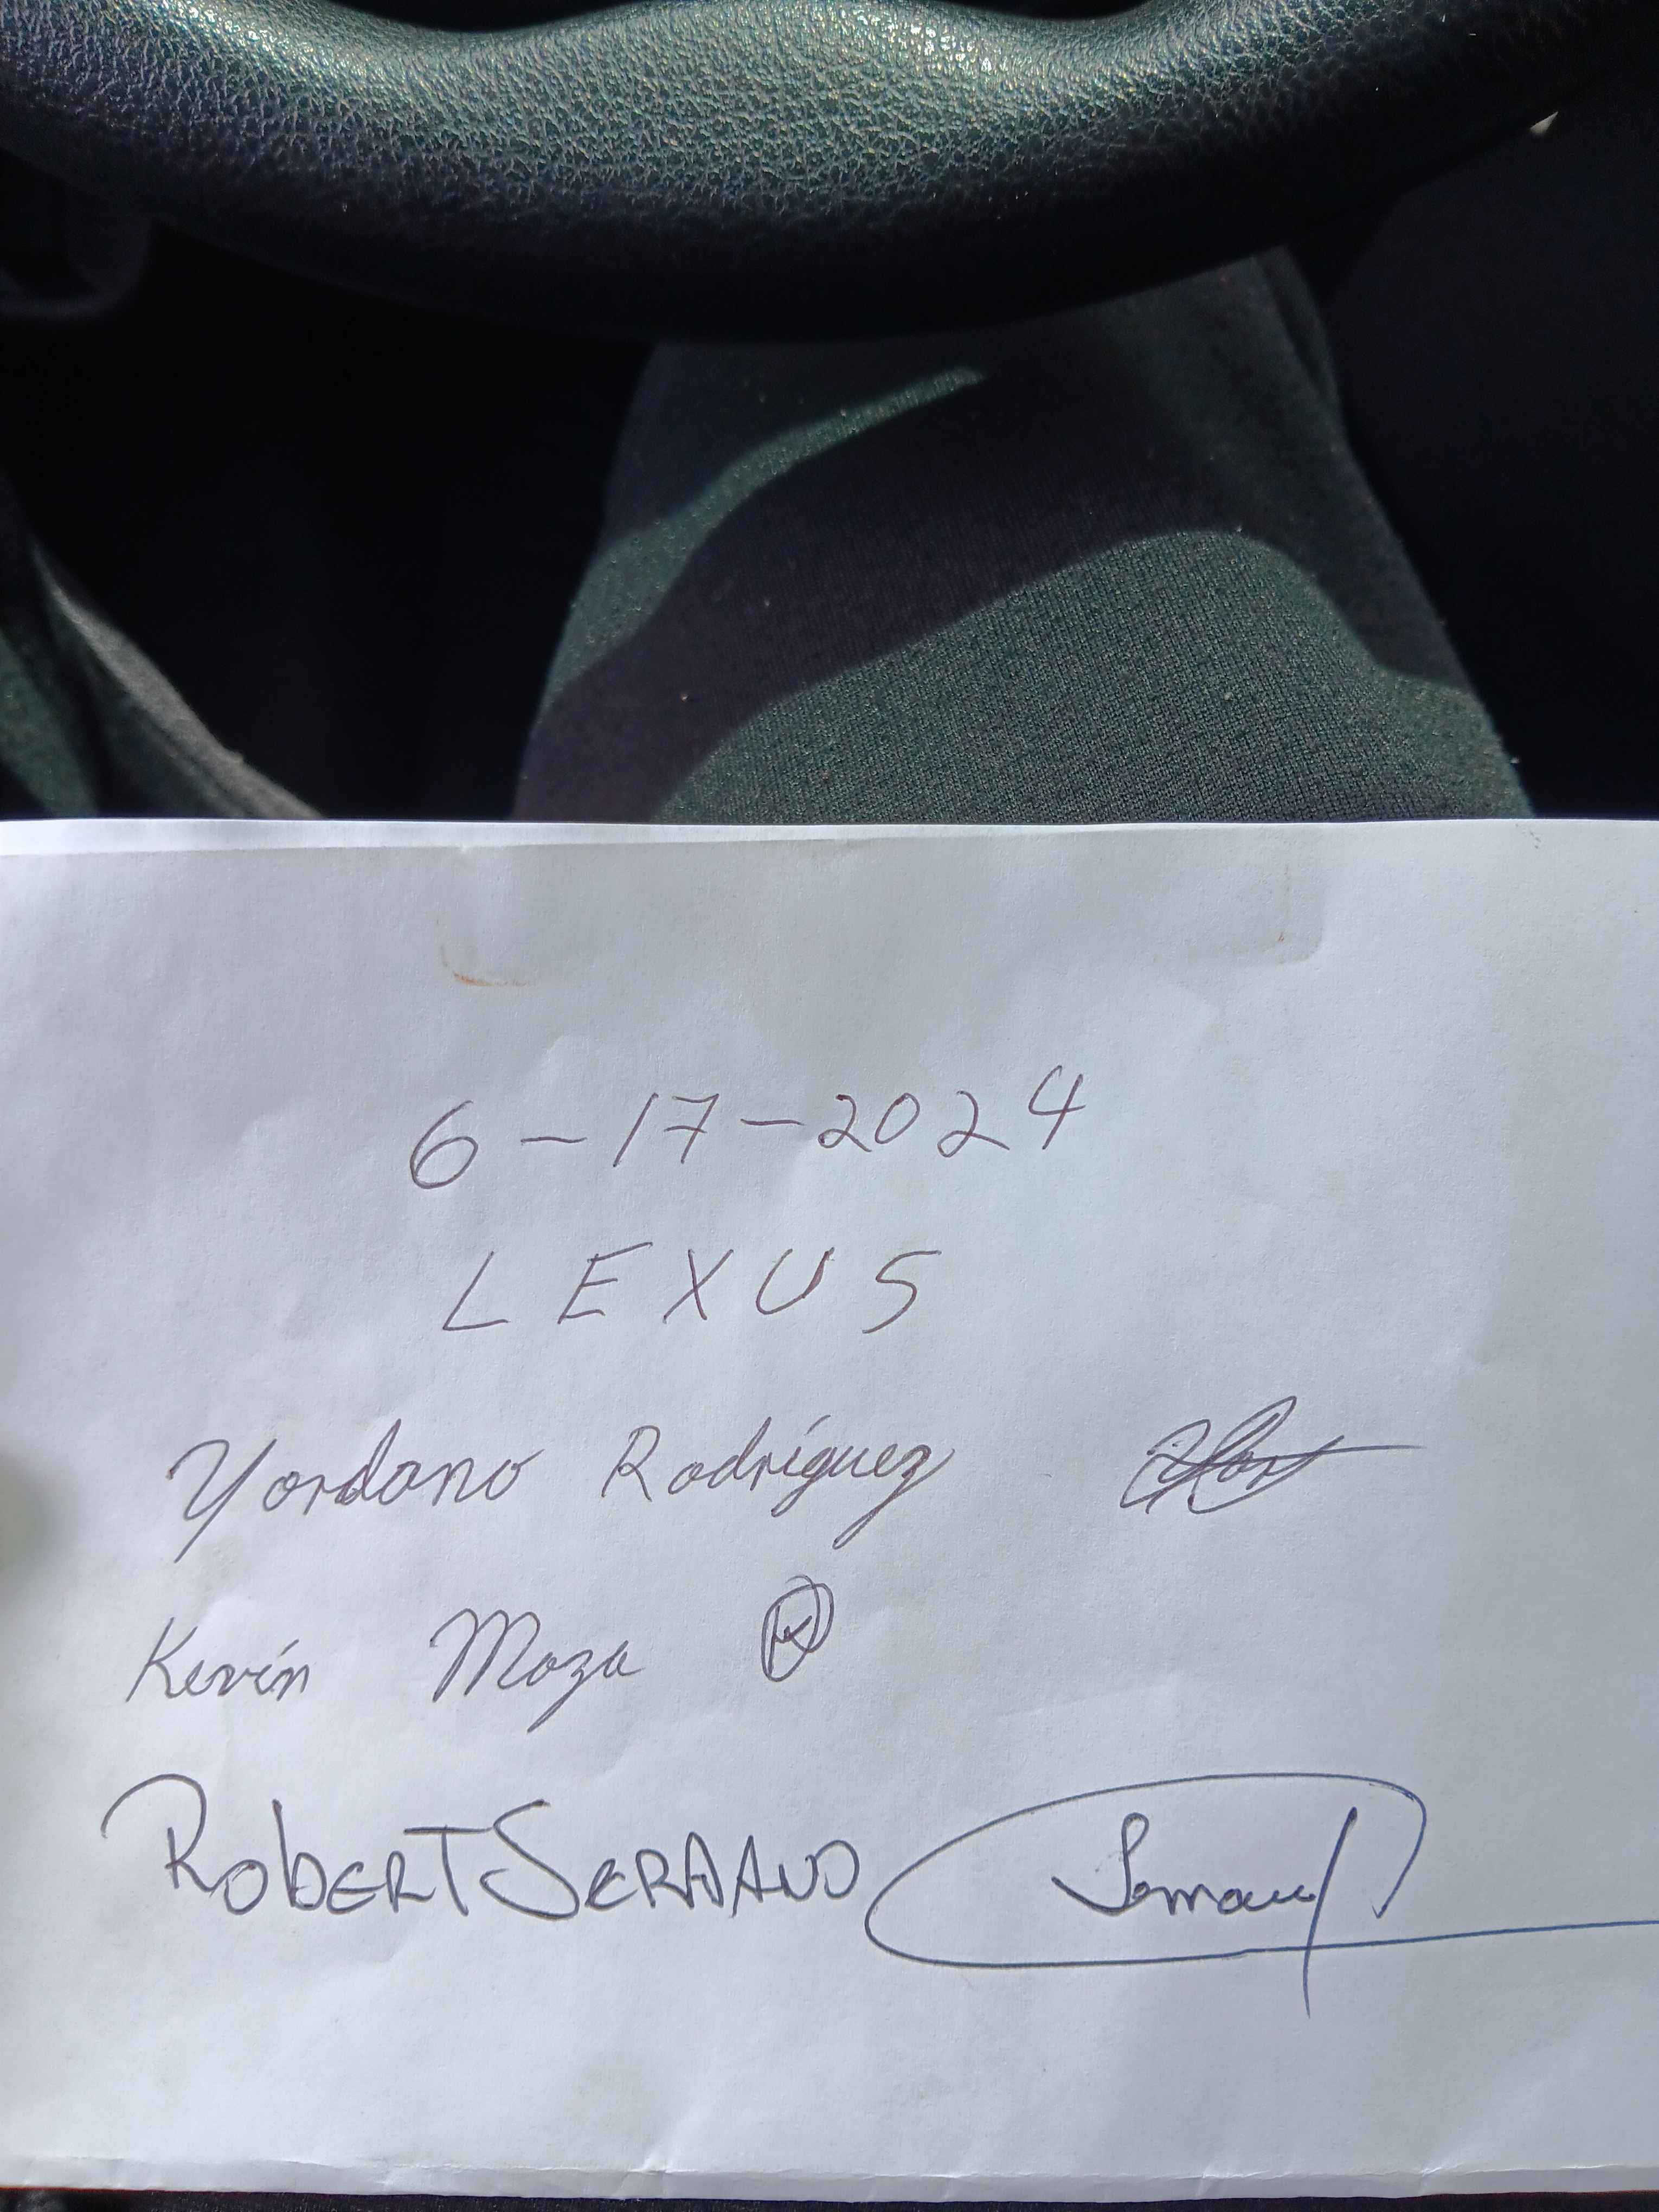 6-17-2024
LEXUS
Yordano Rodríguez
Kevín Moza
ROBERT SERRANO